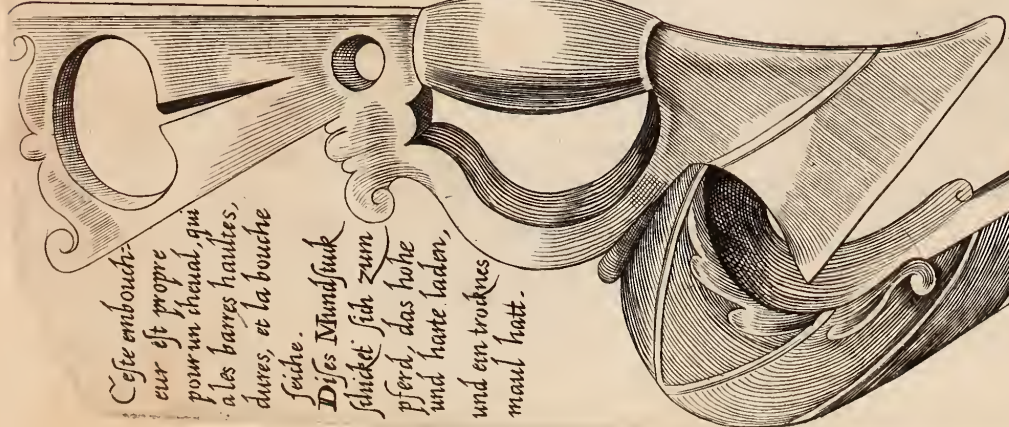 Ceſte embouch=
eur eſt propre
pour un cheual, qui
a les barres haultes,
dures, et la bouche
ſeiche.
Diſes Mundſtuk
ſchicket ſich zum
pferd, das hohe
und harte laden,
und ein troknes
maul hatt.